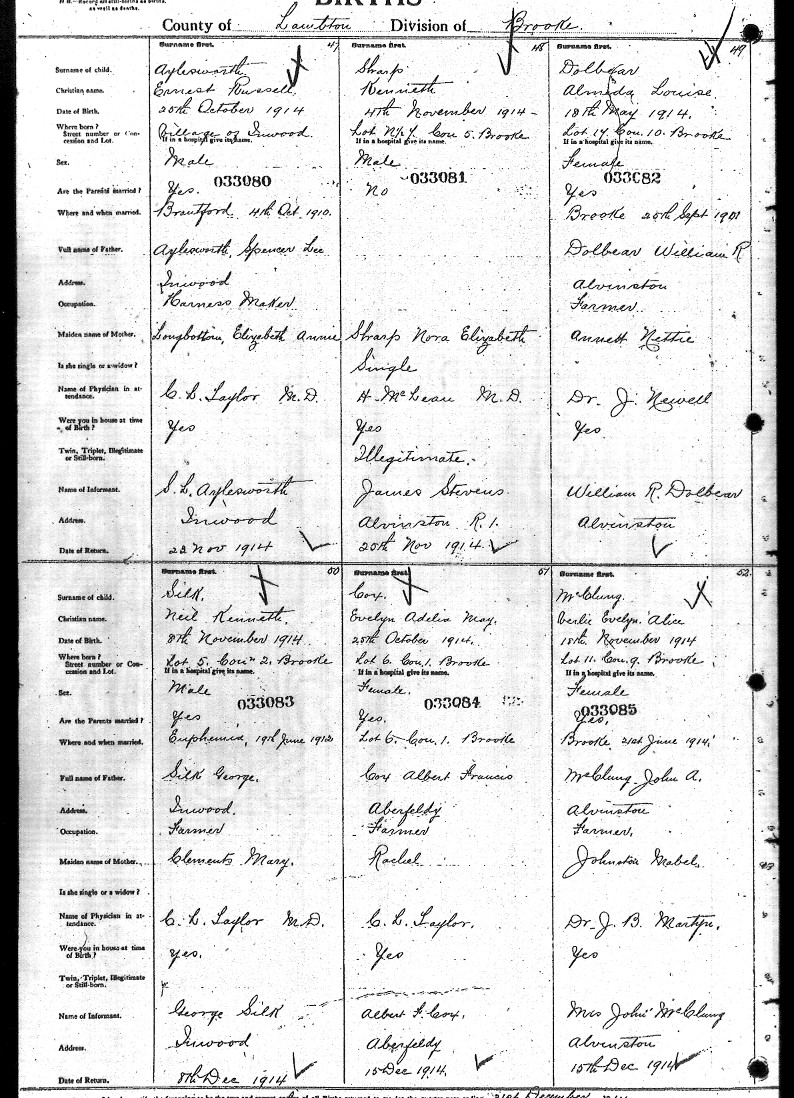 BIRTHS
County of Lambton Division of Brooke.
Surname first. 47 Surname first. 48 Surname first. 49
Surname of child. Aylesworth Sharp Dolbear
Christian name. Ernest Russell Kenneth Almeda Louise
Date of Birth. 25th October 1914 4th November 1914 - 18th May 1914.
Where born? Street number or Concession and Lot. Village of Inwood Lot N½ 7. Con 5. Brooke Lot 17. Con. 10. Brooke
If in a hospital give its name. If in a hospital give its name. If in a hospital give its name.
Sex. Male Male Female
033080 033081 033082
Are the Parents married? Yes. No Yes
Where and when married. Brantford 4th Oct. 1910. Brooke 25th Sept 1901
Full name of Father. Aylesworth, Spencer Lee Dolbear William R
Address. Inwood Alvinston
Occupation. Harness Maker Farmer
Maiden name of Mother. Longbottom, Elizabeth Annie Sharp Nora Elizabeth Annett Nettie
Is she single or a widow? Single
Name of Physician in attendance. C. L. Taylor M.D. H. McLean M.D. Dr. J. Newell
Were you in house at time of Birth? Yes Yes Yes
Twin, Triplet, Illegitimate or Still-born. Illegitimate.
Name of Informant. S. L. Aylesworth James Stevens William R. Dolbear
Address. Inwood Alvinston R. 1. Alvinston
Date of Return. 22 Nov 1914 25th Nov 1914
Surname first. 50 Surname first. 51 Surname first. 52
Surname of child. Silk. Cox. McClung.
Christian name. Neil Kenneth. Evelyn Adelia May. Evelyn Alice
Date of Birth. 8th November 1914 25th October 1914. 18th November 1914
Where born? Street number or Concession and Lot. Lot 5. Con 2. Brooke Lot 6. Con. 1. Brooke Lot 11. Con. 9. Brooke.
If in a hospital give its name. If in a hospital give its name. If in a hospital give its name.
Sex. Male Female. Female
033083 033084 033085
Are the Parents married? Yes Yes. Yes.
Where and when married. Euphemia, 19th June 1912 Lot 6- Con. 1. Brooke Brooke 21st June 1914.
Full name of Father. Silk George. Cox Albert Francis McClung John A.
Address. Inwood. Aberfeldy Alvinston
Occupation. Farmer Farmer Farmer.
Maiden name of Mother. Clements Mary. Rachel Johnston Mabel.
Is she single or a widow?
Name of Physician in attendance. C. L. Taylor M.D. C. L. Taylor. Dr. J. B. Martyn.
Were you in house at time of Birth? Yes. Yes Yes
Twin, Triplet, Illegitimate or Still-born.
Name of Informant. George Silk Albert F. Cox. Mrs John McClung
Address. Inwood Aberfeldy Alvinston
Date of Return. 8th Dec 1914 15 Dec 1914. 15th Dec 1914